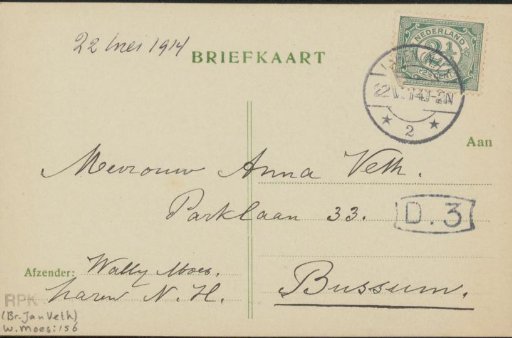 22 Mei 1914
BRIEFKAART
NEDERLAND
2½
CENT
2
Aan
Mevrouw Anna Veth.
Parklaan 33.
D.3
Afzender: Wally Moes.
Laren N. H.
Bussum.
RPK
(Br. Jan Veth)
W. Moes: 156